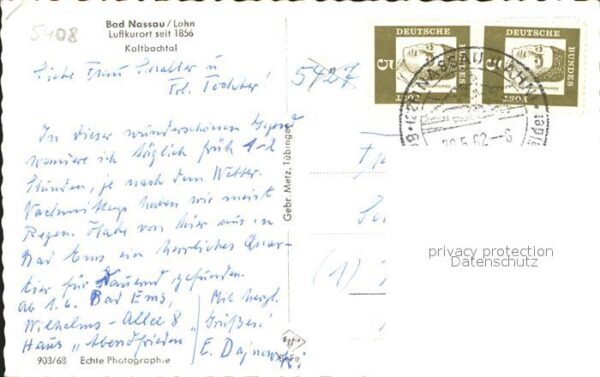 5408
Bad Nassau / Lahn
Luftkurort seit 1856
Kaltbachtal
Liebe Frau Schalter u
Frl. Tochter!
In dieser wunderschönen Gegend
wandere ich täglich früh 1-2
Stunden, je nach dem Wetter.
Nachmittags haben wir meist
Regen. Habe von hier aus in
Bad Ems ein herrliches Quar-
tier für Dauernd gefunden.
Ab 1.6. Bad Ems,
Wilhelms-Allee 8
Haus „Abendfrieden
Mit herzl.
Grüßen!
E.
903/68 Echte Photographie
Gebr. Metz, Tübingen
5427
DEUTSCHE
BUNDES
POST
5
DEUTSCHE
BUNDES
POST
5
NASSAU LAHN
.5.62-8
(1)
privacy protection
Datenschutz